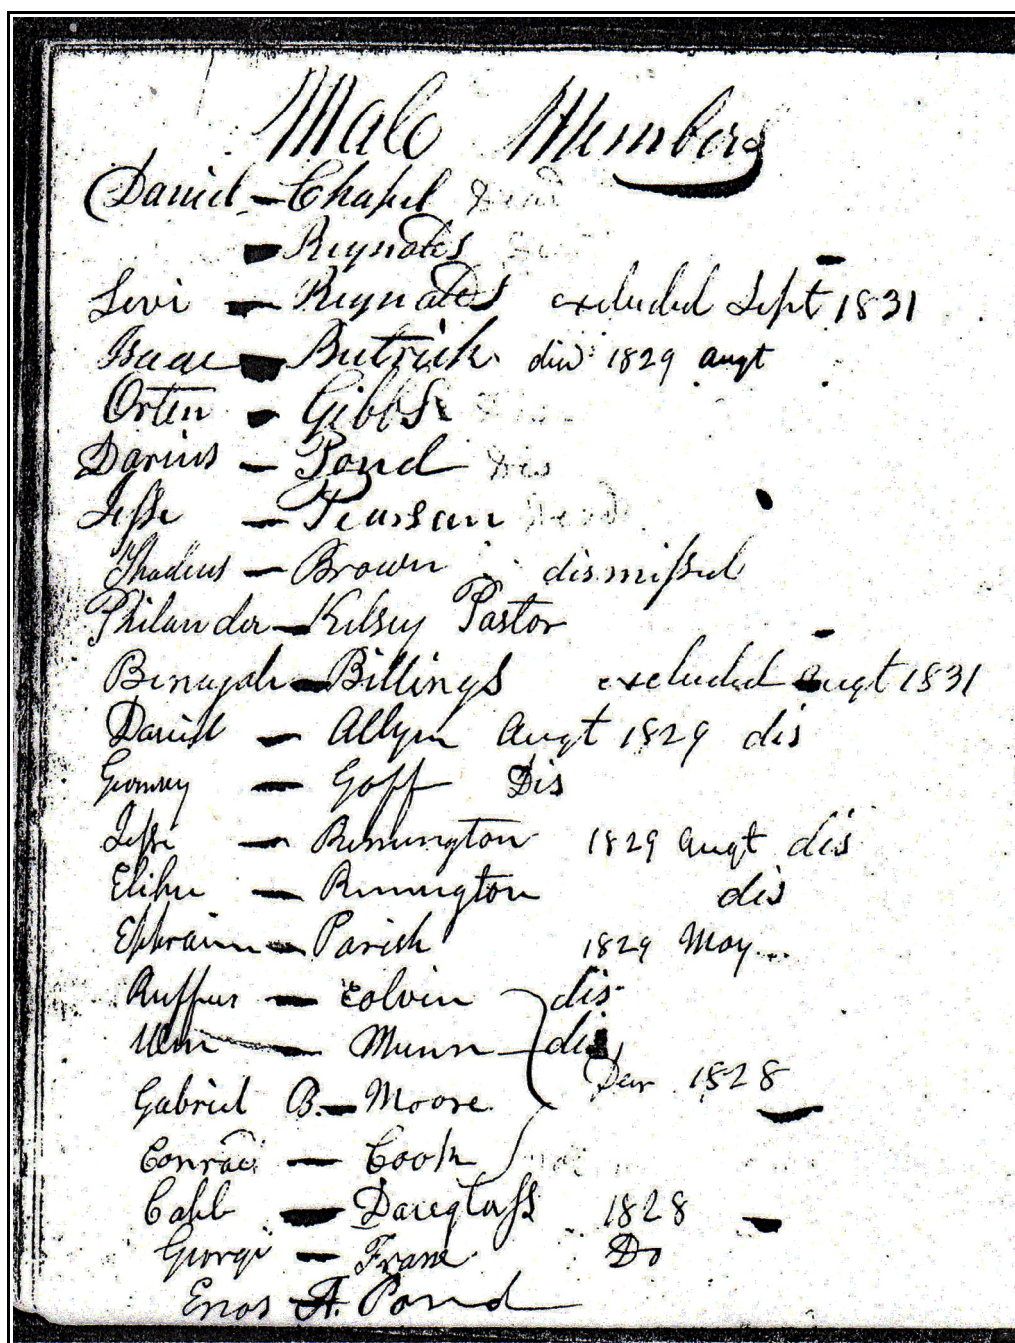 Male Members
Daniel - Chapel Dead
- Reynolds
Levi - Reynolds excluded Sept 1831
Isaac - Butrick died 1829 augt
Orten - Gibbs
Darius - Pond Dis
Jesse - Pearsan Dead
Thadeus - Brown dismissed
Philander - Kelsey Pastor
Benajah - Billings excluded augt 1831
Daniel - Allyn Augt 1829 dis
- Goff Dis
Jesse - Remington 1829 Augt dis
Elihu - Remington dis
Ephraim - Parish 1829 May
Ruffus - Colvin dis
Wm - Munn dis
Gabriel B. - Moore 1828
Conrad - Cook
Caleb - Dauglass 1828
George - Frane Do
Enos A. Pond